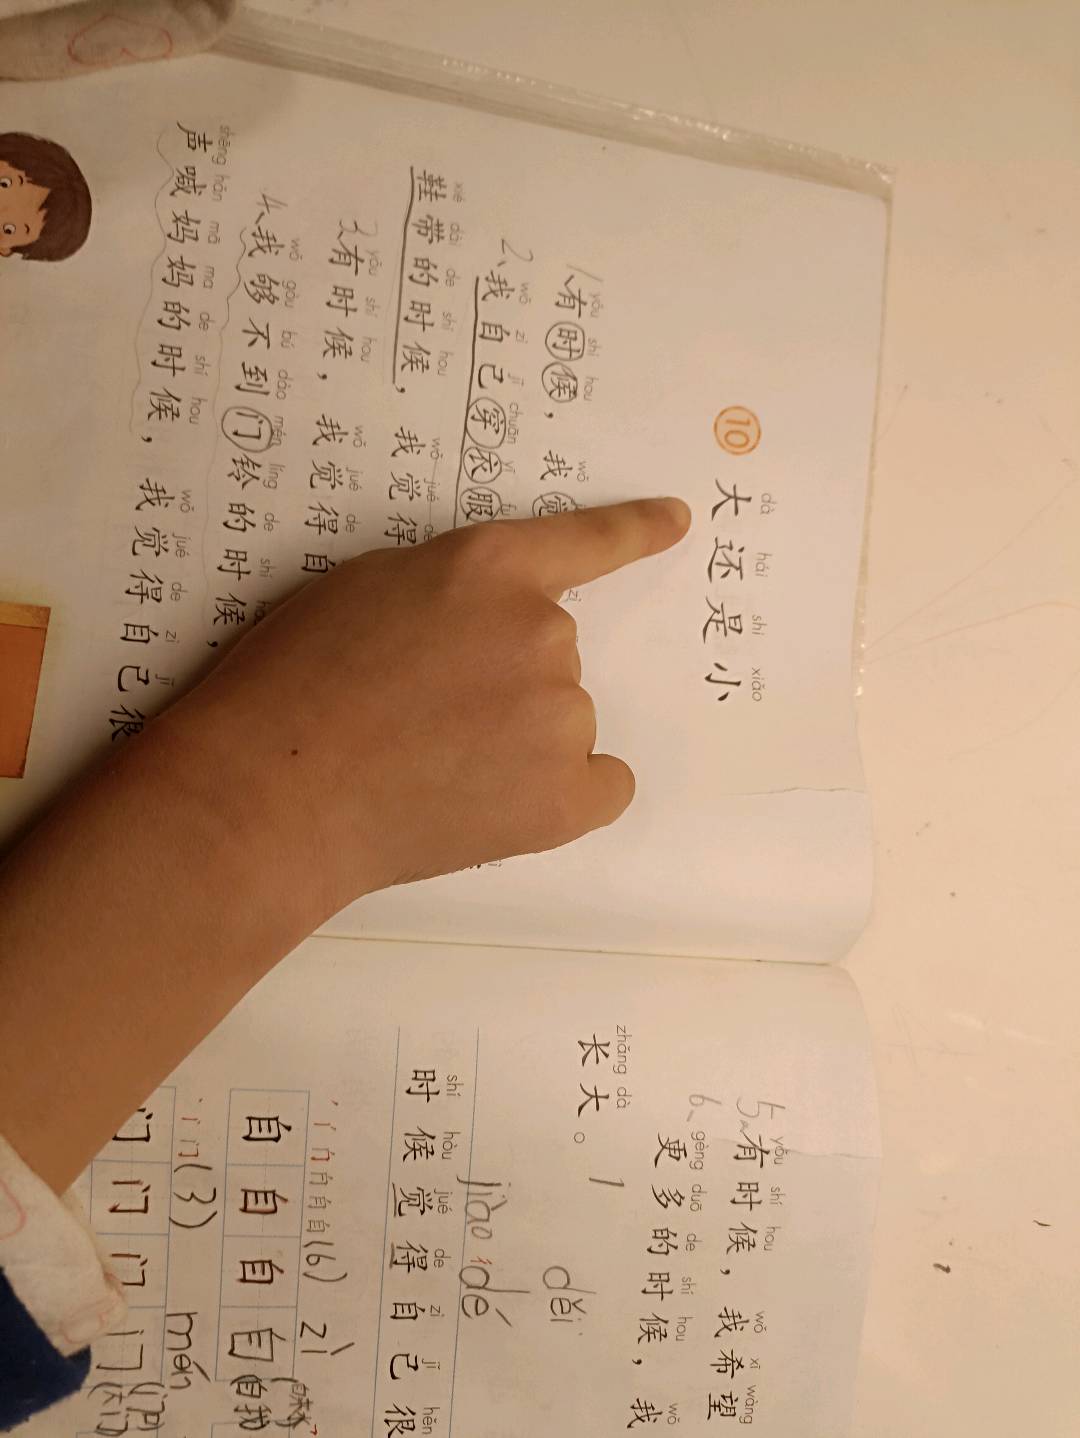 ⑩
dà hái shi xiǎo
大还是小
yǒu shí hou wǒ
1、有时候，我觉
zì
wǒ zì jǐ chuān yī fu
2、我自己穿衣服
xié dài de shí hou wǒ jué de
鞋带的时候，我觉得
yǒu shí hou wǒ jué de
3、有时候，我觉得自
wǒ gòu bú dào mén líng de shí
4、我够不到门铃的时候，
shēng hǎn mā ma de shí hou wǒ jué de zì jǐ
声喊妈妈的时候，我觉得自己很
yǒu shí hou wǒ xī wàng
5、有时候，我希望
gèng duō de shí hou wǒ
6、更多的时候，我
zhǎng dà
长大。1
děi
jiào dé
shí hòu jué de zì jǐ hěn
时候觉得自己很
(6) zì
自 自 自 自 (自我)
(3) mén
门 门 门 门